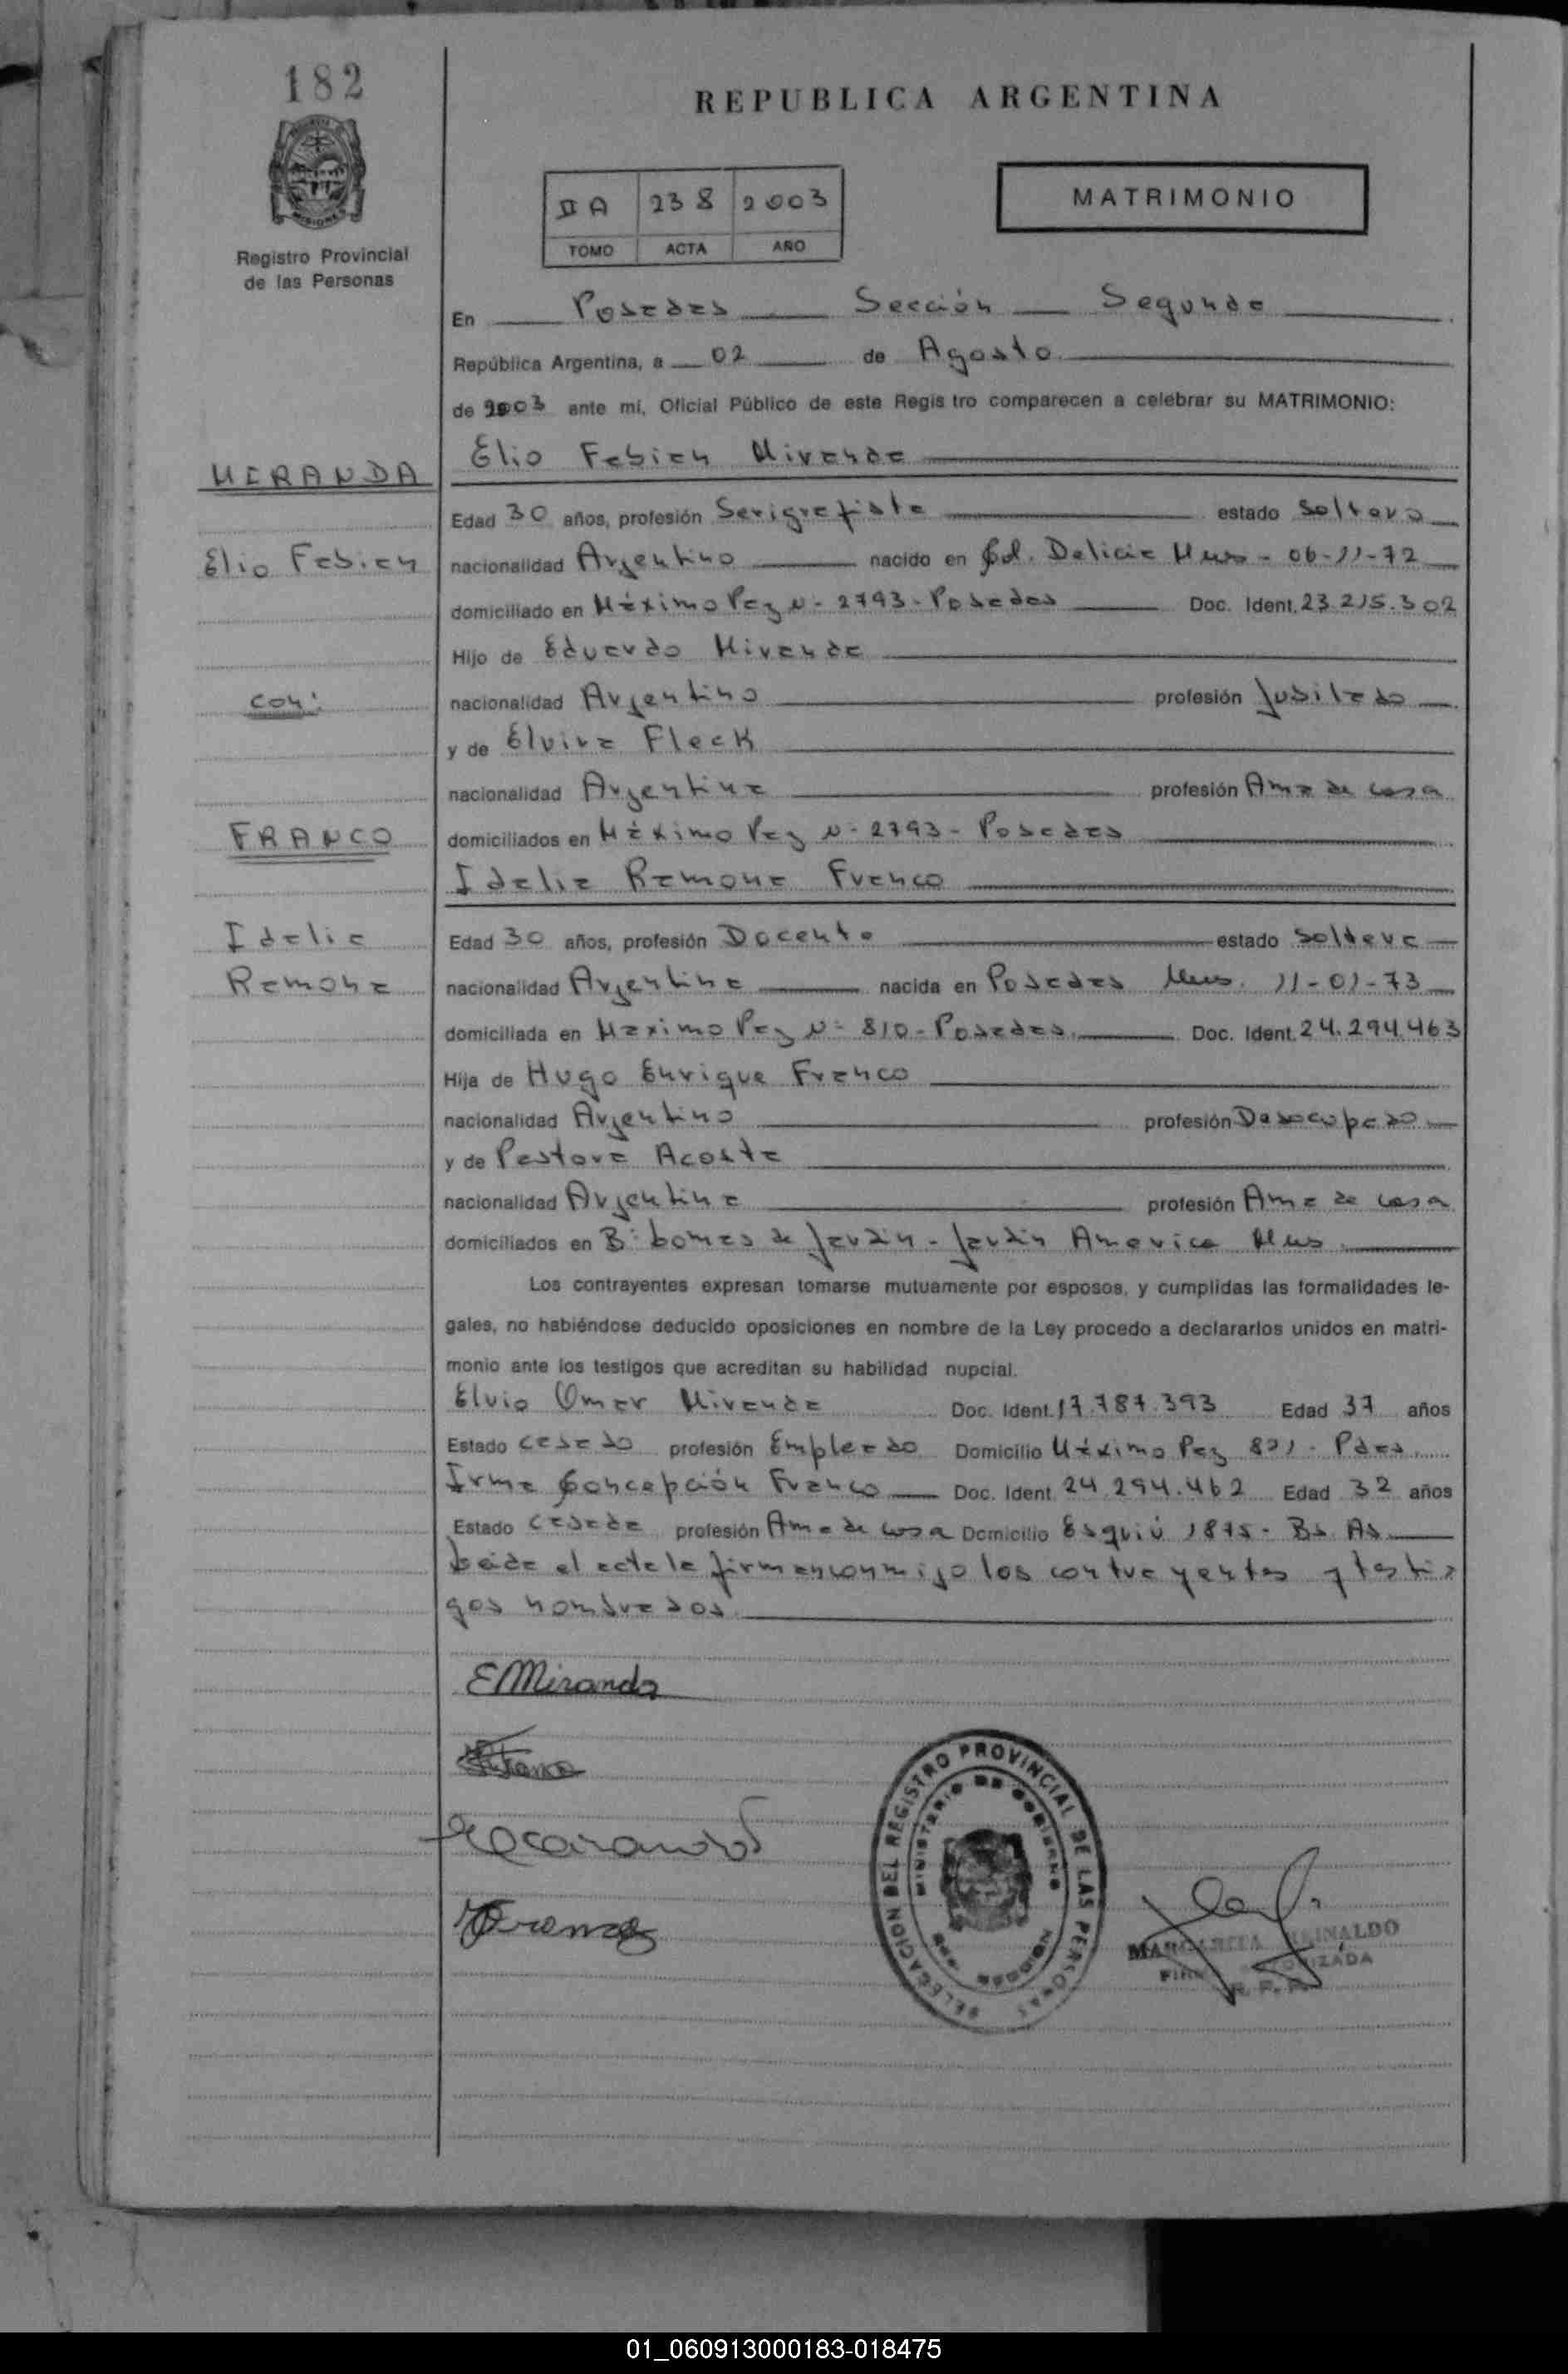 182
REPUBLICA ARGENTINA
II A 238 2003
TOMO ACTA AÑO
MATRIMONIO
Registro Provincial
de las Personas
En Posadas Sección Segunda
República Argentina, a 02 de Agosto
de 2003 ante mí, Oficial Público de este Registro comparecen a celebrar su MATRIMONIO:
MIRANDA
Elio Fabian Miranda
Edad 30 años, profesión Serigrafista estado Soltero
Elio Fabian
nacionalidad Argentino nacido en Cd. Delicia Mnes - 06-11-72
domiciliado en Máximo Paz N- 2793 - Posadas Doc. Ident. 23.215.302
Hijo de Eduardo Miranda
con:
nacionalidad Argentino profesión Jubilado
y de Elvira Fleck
nacionalidad Argentina profesión Ama de casa
FRANCO
domiciliados en Máximo Paz N- 2793 - Posadas
Idalia Ramona Franco
Idalia
Edad 30 años, profesión Docente estado Soltera
Ramona
nacionalidad Argentina nacida en Posadas Mnes. 11-01-73
domiciliada en Maximo Paz N- 810 - Posadas. Doc. Ident. 24.294.463
Hija de Hugo Enrique Franco
nacionalidad Argentino profesión Desocupado
y de Pastora Acosta
nacionalidad Argentina profesión Ama de casa
domiciliados en B: lomas de Jardín - Jardín America Mnes.
Los contrayentes expresan tomarse mutuamente por esposos, y cumplidas las formalidades le-
gales, no habiéndose deducido oposiciones en nombre de la Ley procedo a declararlos unidos en matri-
monio ante los testigos que acreditan su habilidad nupcial.
Elvio Omar Miranda Doc. Ident. 17.787.393 Edad 37 años
Estado casado profesión Empleado Domicilio Máximo Paz 821 - Pdas
Irma Concepción Franco Doc. Ident. 24.294.462 Edad 32 años
Estado casada profesión Ama de casa Domicilio Esquiú 1875 - Bs. As.
Leida el acta la firman conmigo los contrayentes y testi
gos nombrados.
EMiranda
DELEGACION DEL REGISTRO PROVINCIAL DE LAS PERSONAS
MINISTERIO DE GOBIERNO
MARGARITA REINALDO
R. P. P.
01_060913000183-018475